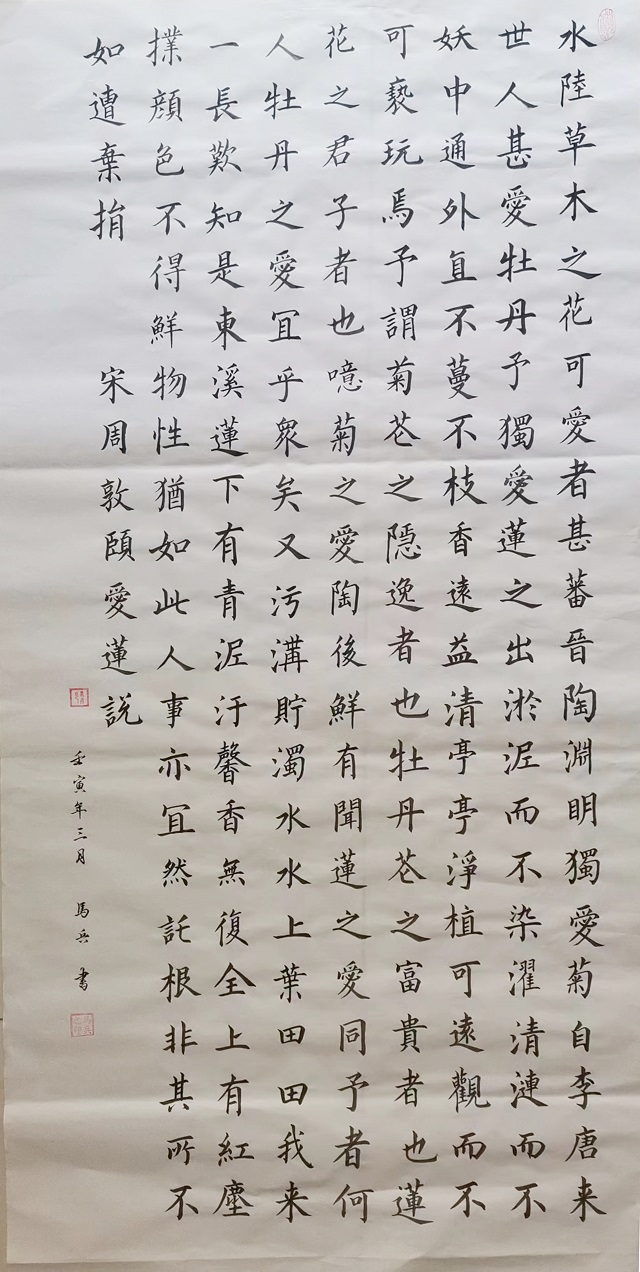 水陸草木之花可愛者甚蕃晉陶淵明獨愛菊自李唐来
世人甚愛牡丹予獨愛蓮之出淤泥而不染濯清漣而不
妖中通外直不蔓不枝香遠益清亭亭淨植可遠觀而不
可褻玩焉予謂菊花之隱逸者也牡丹花之富貴者也蓮
花之君子者也噫菊之愛陶後鮮有聞蓮之愛同予者何
人牡丹之愛冝乎衆矣又污溝貯濁水水上葉田田我来
一長歎知是東溪蓮下有青泥汙馨香無復全上有紅塵
撲顔色不得鮮物性猶如此人事亦冝然託根非其所不
如遭棄捐 宋周敦頤愛蓮説
壬寅年三月 馬兵 書